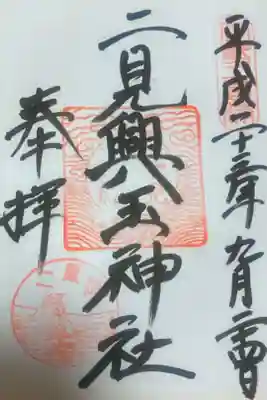 平成二十三年九月二十四日
二見興玉神社
奉拝